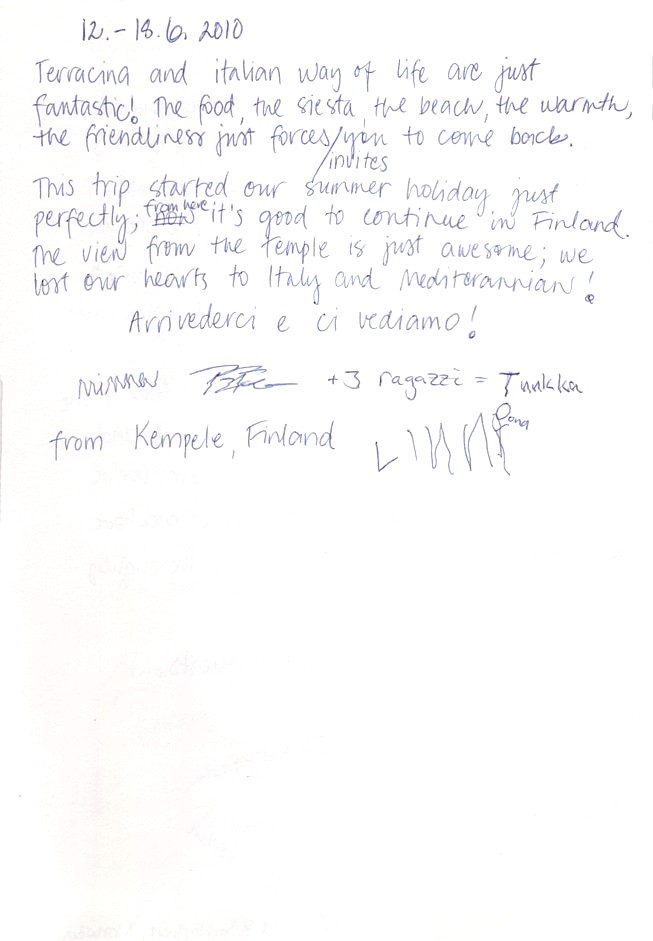 12.-18.6. 2010
Terracina and italian way of life are just
fantastic! The food, the siesta, the beach, the warmth,
the friendliness just forces/you to come back.
invites
This trip started our summer holiday just
perfectly; from here it's good to continue in Finland.
The view from the temple is just awesome; we
lost our hearts to Italy and Mediterannian!
Arrivederci e ci vediamo!
+3 ragazzi = Tuukka
from Kempele, Finland